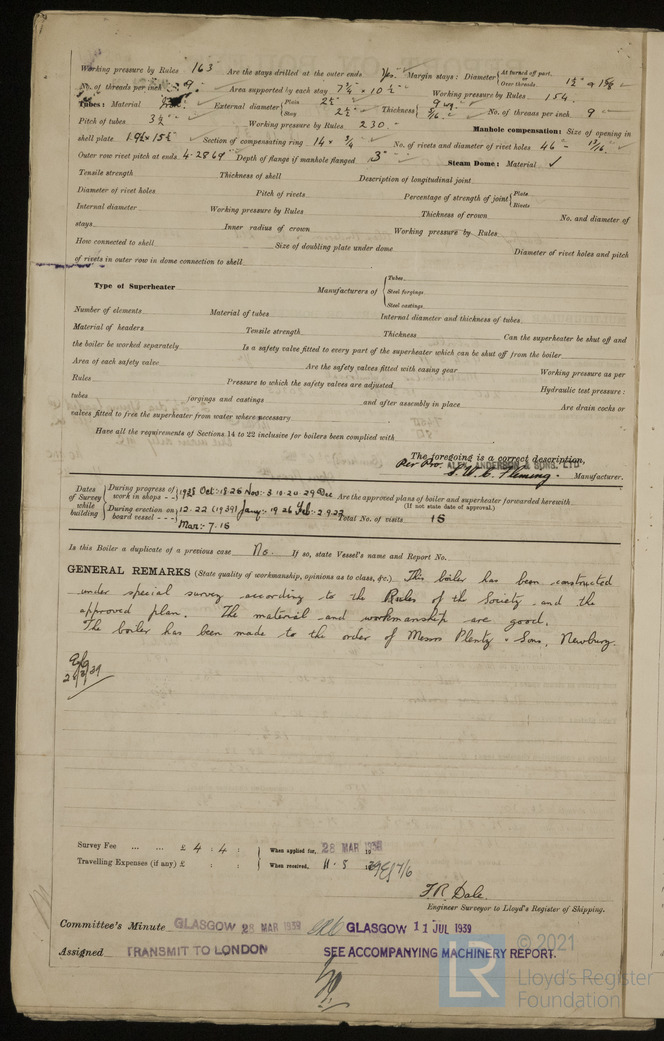 Working pressure by Rules 163 Are the stays drilled at the outer ends Yes. Margin stays: Diameter { At turned off part, or Over threads
No. of threads per inch 9. Area supported by each stay Working pressure by Rules 154.
Tubes: Material External diameter { Plain 2½" Stay 2½" Thickness { 9 wg. 5/16" No. of threads per inch 9
Pitch of tubes Working pressure by Rules 230 Manhole compensation: Size of opening in
shell plate 19½ x 15½ Section of compensating ring 14 x ¾ No. of rivets and diameter of rivet holes 46 - 13/16"
Outer row rivet pitch at ends 4.2869 Depth of flange if manhole flanged 3" Steam Dome: Material ✓
Tensile strength Thickness of shell Description of longitudinal joint
Diameter of rivet holes Pitch of rivets Percentage of strength of joint { Plate Rivets
Internal diameter Working pressure by Rules Thickness of crown No. and diameter of
stays Inner radius of crown Working pressure by Rules
How connected to shell Size of doubling plate under dome Diameter of rivet holes and pitch
of rivets in outer row in dome connection to shell
Type of Superheater Manufacturers of { Tubes Steel forgings Steel castings
Number of elements Material of tubes Internal diameter and thickness of tubes
Material of headers Tensile strength Thickness Can the superheater be shut off and
the boiler be worked separately Is a safety valve fitted to every part of the superheater which can be shut off from the boiler
Area of each safety valve Are the safety valves fitted with easing gear Working pressure as per
Rules Pressure to which the safety valves are adjusted Hydraulic test pressure:
tubes forgings and castings and after assembly in place Are drain cocks or
valves fitted to free the superheater from water where necessary
Have all the requirements of Sections 14 to 22 inclusive for boilers been complied with
The foregoing is a correct description,
Per Pro. ALEX. ANDERSON & SONS, LTD
Fleming. Manufacturer.
Dates of Survey while building { During progress of work in shops - - 1938 Oct: 18 26 Nov: 3 10 20 29 Dec Are the approved plans of boiler and superheater forwarded herewith
(If not state date of approval.)
During erection on board vessel - - - 12. 22 (1939) Jany: 19 26 Feb: 2 9 22 Total No. of visits 15
Mar: 7. 15
Is this Boiler a duplicate of a previous case No. If so, state Vessel's name and Report No.
GENERAL REMARKS (State quality of workmanship, opinions as to class, &c.) This boiler has been constructed
under special survey according to the Rules of the Society and the
approved plan. The material and workmanship are good.
The boiler has been made to the order of Messrs Plenty & Sons, Newbury.
Survey Fee ... ... £ 4 : 4 : When applied for, 28 MAR 1939
Travelling Expenses (if any) £ : : When received, 11.5 1939
F.R. Dale.
Engineer Surveyor to Lloyd's Register of Shipping.
Committee's Minute GLASGOW 28 MAR 1939 GLASGOW 11 JUL 1939
Assigned TRANSMIT TO LONDON SEE ACCOMPANYING MACHINERY REPORT.
LR © 2021
Lloyd's Register
Foundation